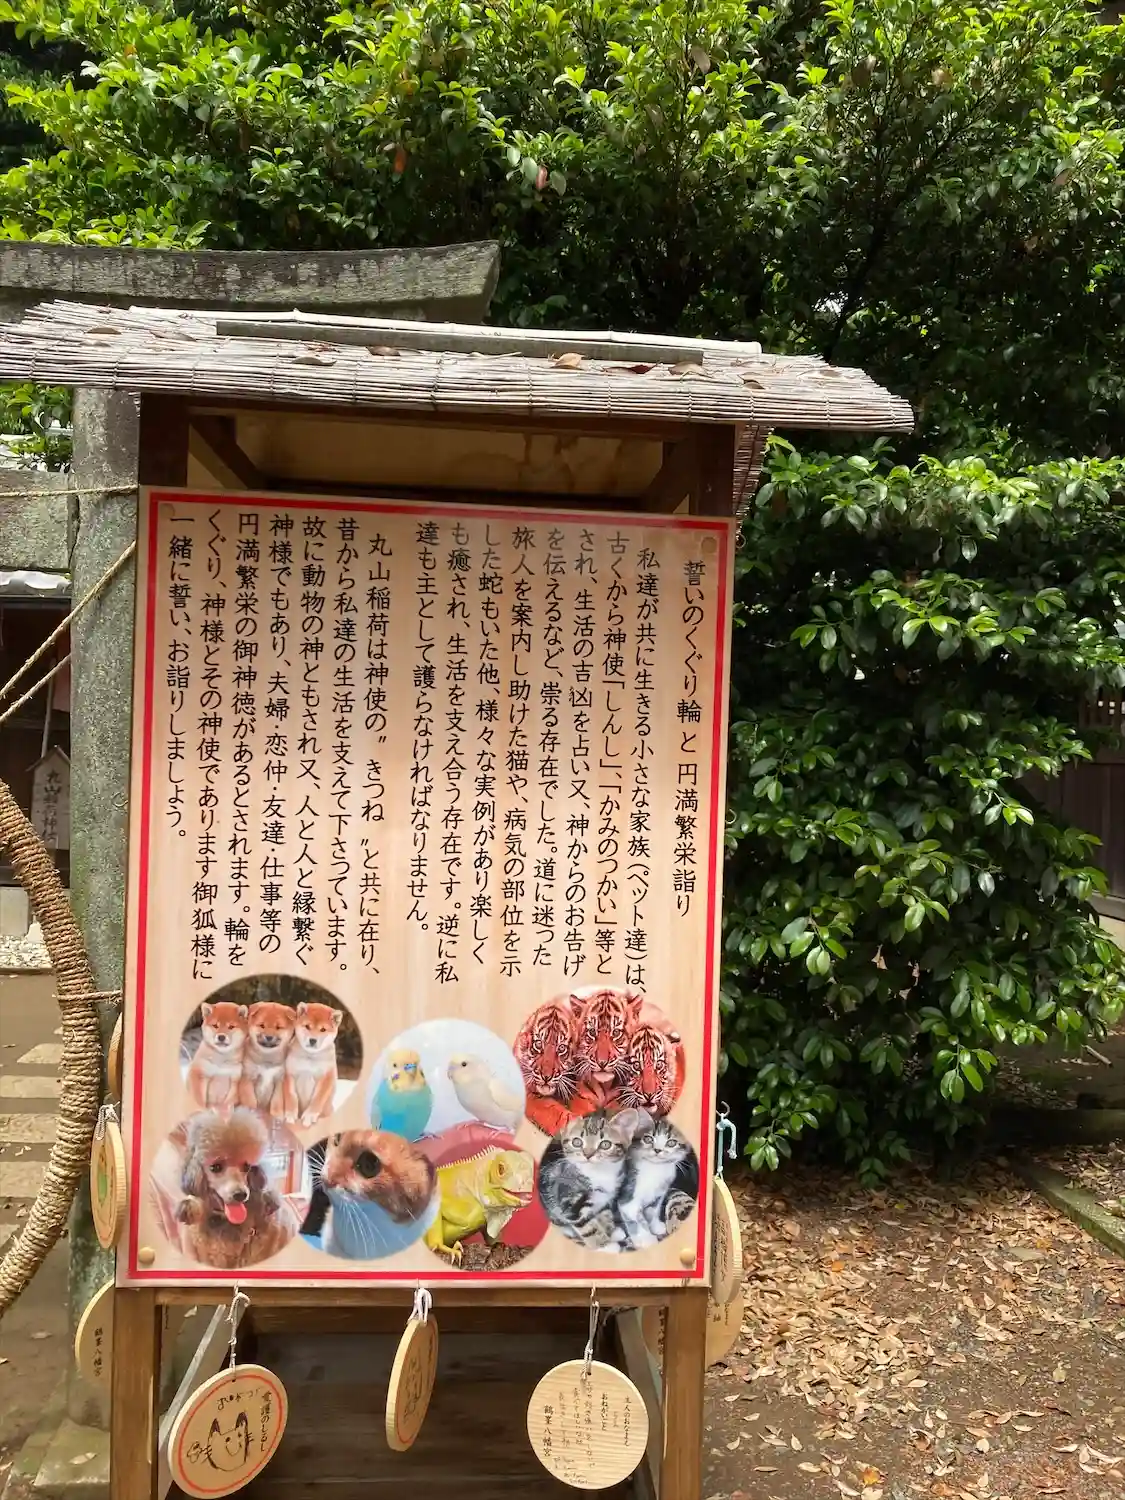 誓いのくぐり輪と円満繁栄詣り
私達が共に生きる小さな家族(ペット達)は、
古くから神使「しんし」、「かみのつかい」等と
され、生活の吉凶を占い又、神からのお告げ
を伝えるなど、崇る存在でした。道に迷った
旅人を案内し助けた猫や、病気の部位を示
した蛇もいた他、様々な実例があり楽しく
も癒され、生活を支え合う存在です。逆に私
達も主として護らなければなりません。
丸山稲荷は神使の〝きつね〟と共に在り、
昔から私達の生活を支えて下さっています。
故に動物の神ともされ又、人と人と縁繋ぐ
神様でもあり、夫婦・恋仲・友達・仕事等の
円満繁栄の御神徳があるとされます。輪を
くぐり、神様とその神使であります御狐様に
一緒に誓い、お詣りしましょう。
愛護のしるし
主人のおなまえ
おねがいごと
鶴峯八幡宮
鶴峯八幡宮